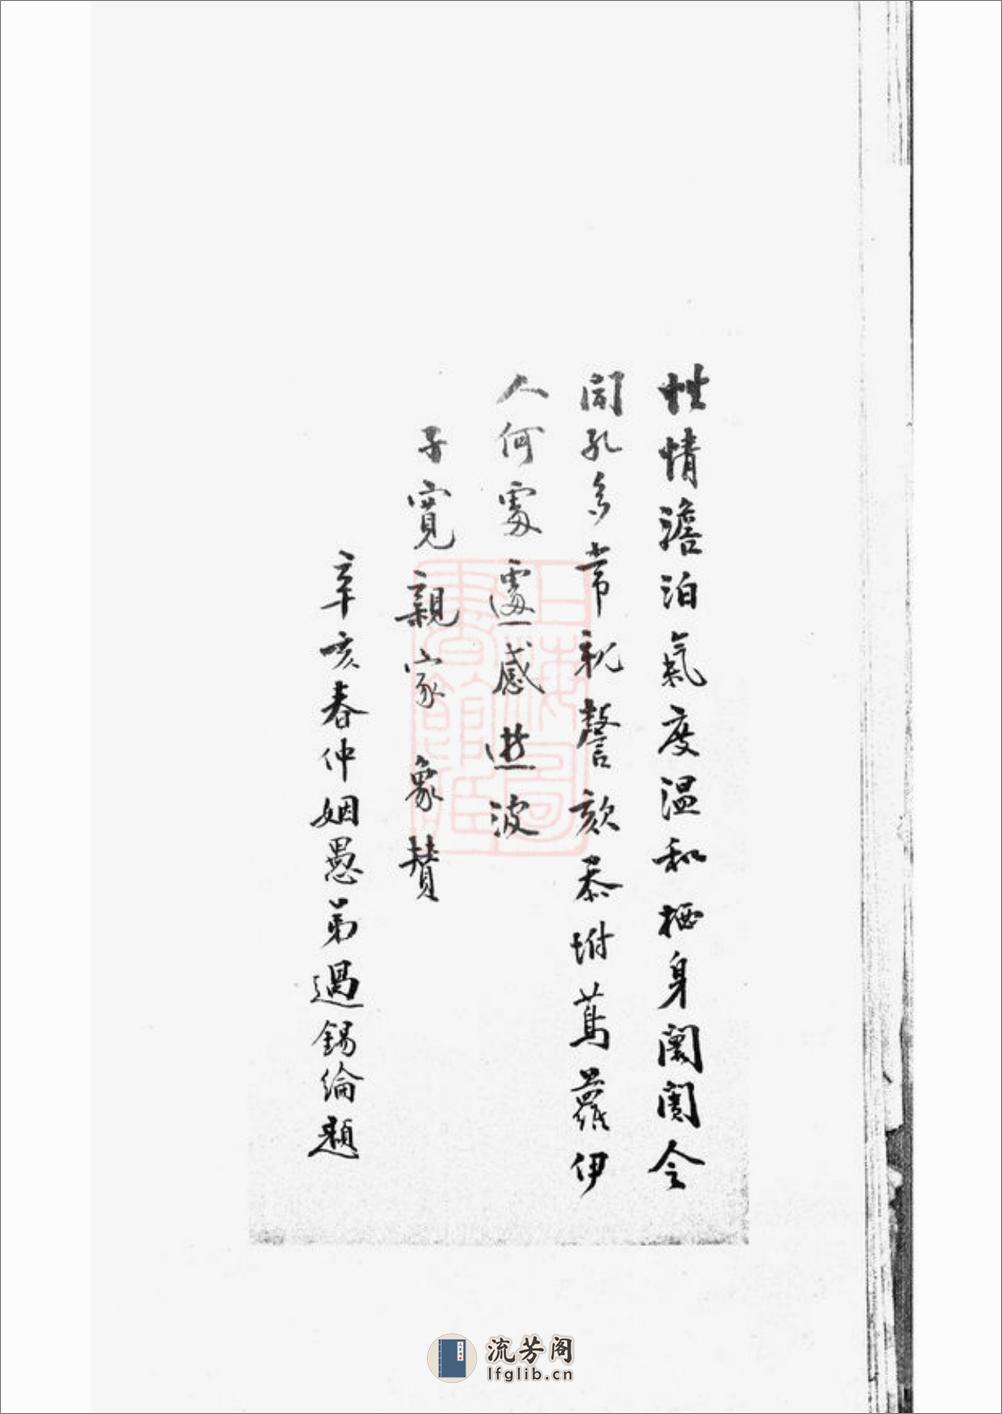 性情澹泊氣度温和栖身闤闠令
聞孔多常親謦欬忝坿蔦蘿伊
人何處遽感逝波
子寬親家象贊
辛亥春仲姻愚弟過錫綸題
上海圖書館藏
流芳阁
lfglib.cn